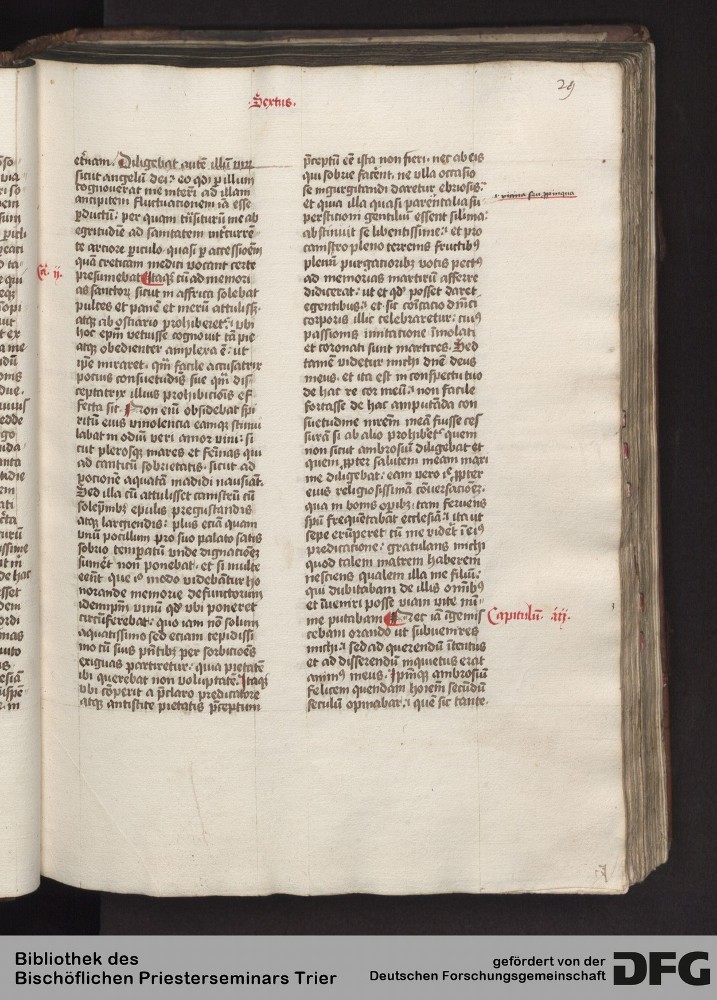 29
·Sextus·
et̄nam. Diligebat autē illū viꝝ
sicut angelū dei: eo qd̓ p illum
cognouerat me interī ad illam
ancipitem fluctuationem iā esse
ꝑductū: per quam trāsiturū me ab
egritudīe ad sanitatem int̓currē
te artiore piculo quasi p accessioēm
quā creticam medici vocant certe
presumebat Itaqꝫ cū ad memori
as sanctoꝝ sicut in affrica solebat
pultes et panē et merū attulissꝫ
atqꝫ ab ostiario prohiberet̓: vbi
hoc ep̄m vetuisse cognouit tā pie
atqꝫ obedienter amplexa ē: ut
ip̄e mirarer qm̄ facile accusatrix
pocius consuetudīs sue qm̄ dis
ceptatrix illius prohibicionis ef
fecta sit. Non em̄ obsidebat sp̄i
ritū eius vinolencia eamqꝫ stimu
labat in odiū veri amor vini: si
cut plerosqꝫ mares et fem̄as qui
ad canticū sobrietatis sicut ad
pocionē aquatā madidi nausiāt.
Sed illa cū attulisset canistrū cū
solēpnibꝫ epulis pregustandis
atqꝫ largiendis: plus eciā quam
vnū pocillum pro suo palato satis
sobrio temꝑatū vnde dignacioēꝫ
sumēt non ponebat et si multe
eēnt que io modo videbāntur ho
norande memorie defunctorum
idemip̄m vnnū qd̓ vbi poneret
circūferebat: quo iam nō solum
aquatissimo sed etiam tepidissi
mo cū suis pn̄tibꝫ per sorbicioēs
exiguas partiretur: quia pietatē
ibi querebat non voluptatē. Itaqꝫ
vbi cōperit a p̄claro predicatore
atqꝫ antistite pietatis p̄ceptum
Ca. ii.
p̄ceptū eē ista non fieri nec ab eis
qui sobrie facerēt ne vlla occasio
se ingurgitandi daretur ebriosis:
et quia illa quasi parentalia su
perstitioni gentiliū essent silima:
abstinuit se libentissime: et pro
canistro pleno terrenis fructibꝰ
plenū purgatioribꝫ votis pectꝰ
ad memorias martirū afferre
didicerat: ut et qd̓ posset daret
egentibus: et sic cōicatio dm̄ci
corporis illic celebraretur: cuiꝰ
passionis imitatione īmolati
et coronati sunt martires. Sed
tamē videtur michi dn̄e deus
meus et ita est in conspectu tuo
de hac re cor meū: non facile
fortasse de hac amputāda con
suetudine mrēm meā fuisse ces
surā si ab alio prohibet̓ quem
non sicut ambrosiū diligebat et
quem ꝓpter salutem meam maxi
me diligebat: eam vero iꝑe ꝓpter
eius religiosissimā cōuersacioēꝫ
qua in bonis oꝑibꝫ tam feruens
spū frequētabat ecclesiā: ita ut
sepe erūperet cū me videt̓ ī eiꝰ
predicatione: gratulans michi
quod talem matrem haberem
nesciens qualem illa me filiū:
qui dubitabam de illis om̄ibꝰ
et īuemri posse viam vite mi
me putabam Nec iā īgemis
cebam orando ut subuenires
michi: sed ad querendū ītentus
et ad disserendū inquietus erat
animꝰ meus. Ipm̄qꝫ ambrosiū
felicem quendam hoīem secūdū
seculū opinabar: quē sic tante
Capitulū .iii.